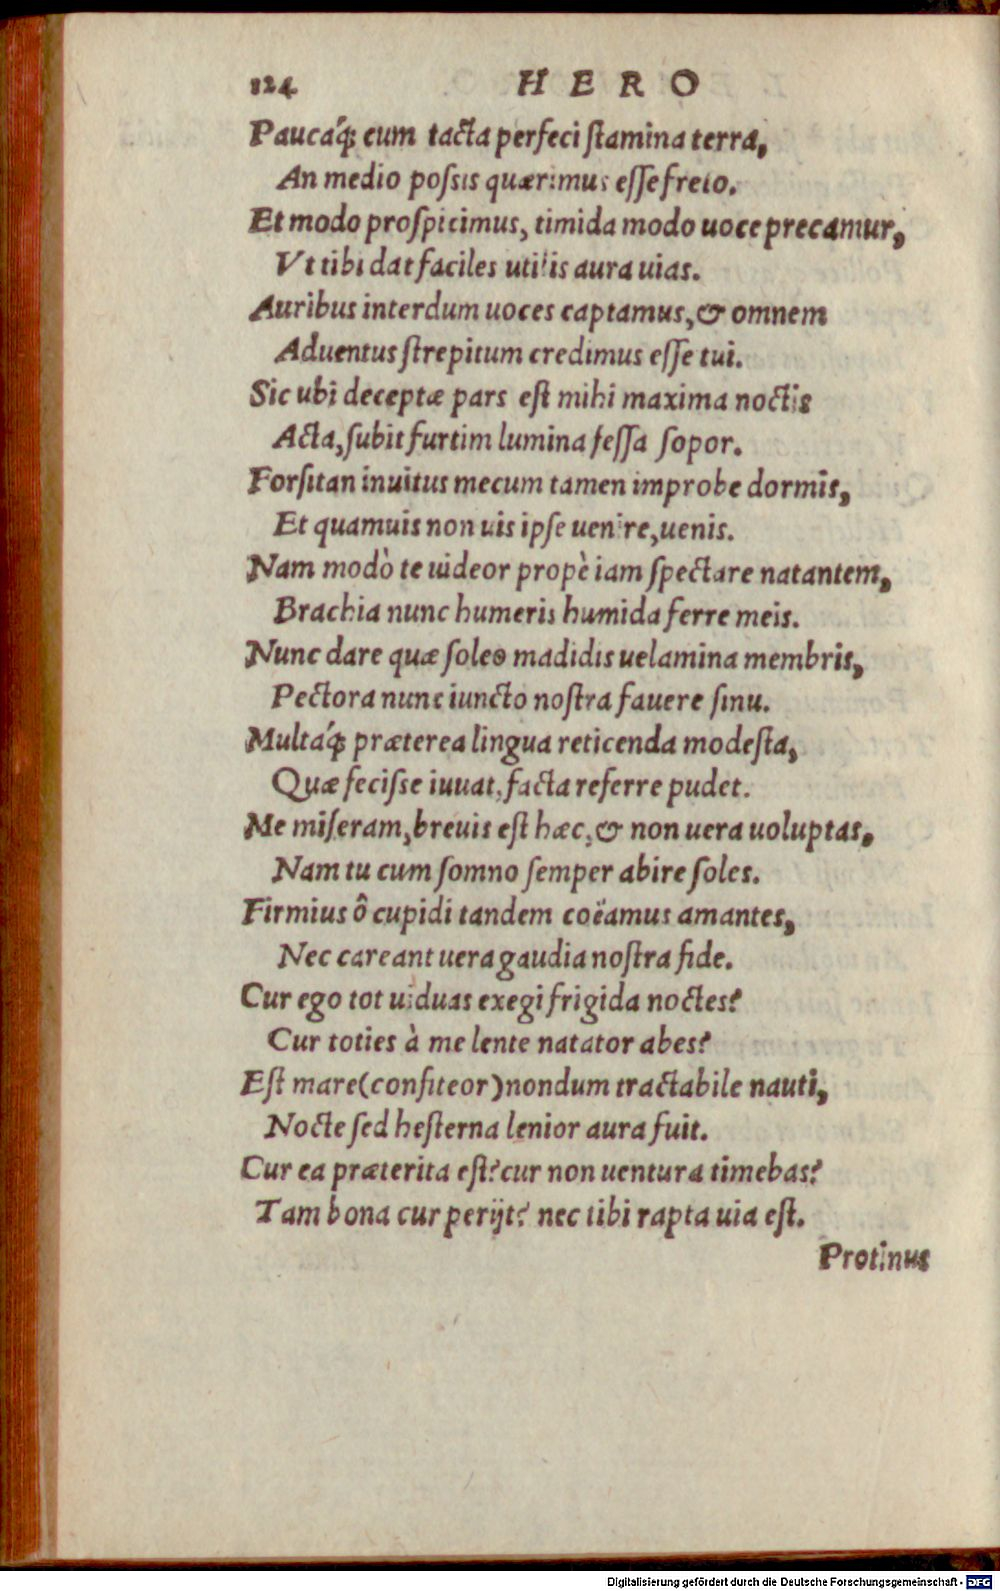 124 HERO
Paucáq; cum tacta perfeci ſtamina terra,
An medio poſsis quærimus eſſe freto.
Et modo proſpicimus, timida modo uoce precamur,
Vt tibi dat faciles utilis aura uias.
Auribus interdum uoces captamus, & omnem
Aduentus ſtrepitum credimus eſſe tui.
Sic ubi deceptæ pars eſt mihi maxima noctis
Acta, ſubit furtim lumina feſſa ſopor.
Forſitan inuitus mecum tamen improbe dormis,
Et quamuis non uis ipſe uenire, uenis.
Nam modò te uideor propè iam ſpectare natantem,
Brachia nunc humeris humida ferre meis.
Nunc dare quæ ſoleo madidis uelamina membris,
Pectora nunc iuncto noſtra fauere ſinu.
Multáq; præterea lingua reticenda modeſta,
Quæ feciſse iuuat, facta referre pudet.
Me miſeram, breuis eſt hæc, & non uera uoluptas,
Nam tu cum ſomno ſemper abire ſoles.
Firmius ô cupidi tandem coëamus amantes,
Nec careant uera gaudia noſtra fide.
Cur ego tot uiduas exegi frigida noctes?
Cur toties à me lente natator abes?
Eſt mare (confiteor) nondum tractabile nauti,
Nocte ſed heſterna lenior aura fuit.
Cur ea præterita eſt? cur non uentura timebas?
Tam bona cur perijt? nec tibi rapta uia eſt.
Protinus
Digitalisierung gefördert durch die Deutsche Forschungsgemeinschaft - DFG